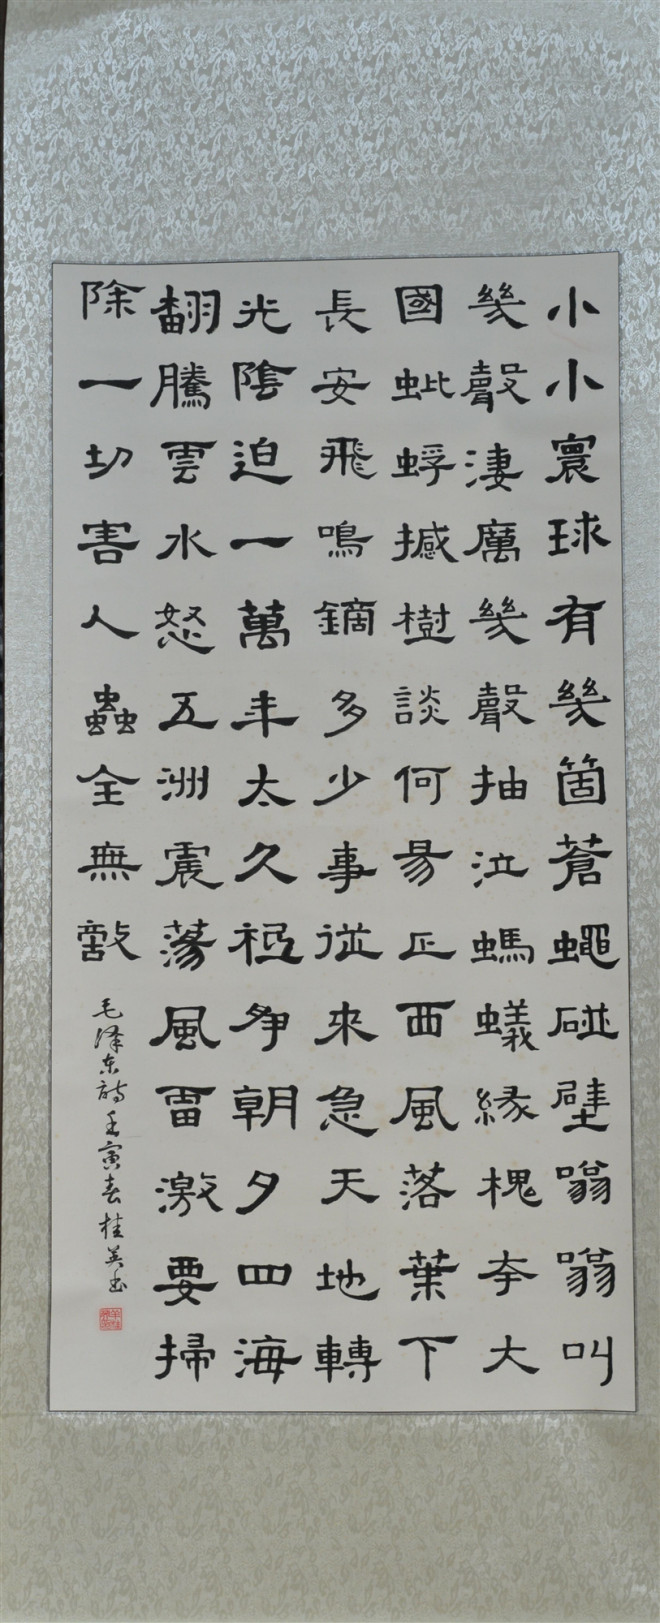 小小寰球有幾箇蒼蠅碰壁嗡嗡叫
幾聲淒厲幾聲抽泣螞蟻緣槐夸大
國蚍蜉撼樹談何易正西風落葉下
長安飛鳴鏑多少事從來急天地轉
光陰迫一萬年太久祇爭朝夕四海
翻騰雲水怒五洲震蕩風雷激要掃
除一切害人蟲全無敵
毛泽东詩壬寅春桂英书